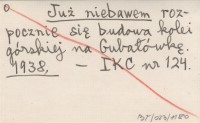 Już niebawem roz-
pocznie się budowa kolei
górskiej na Gubałówkę.
1938, - IKC nr 124.